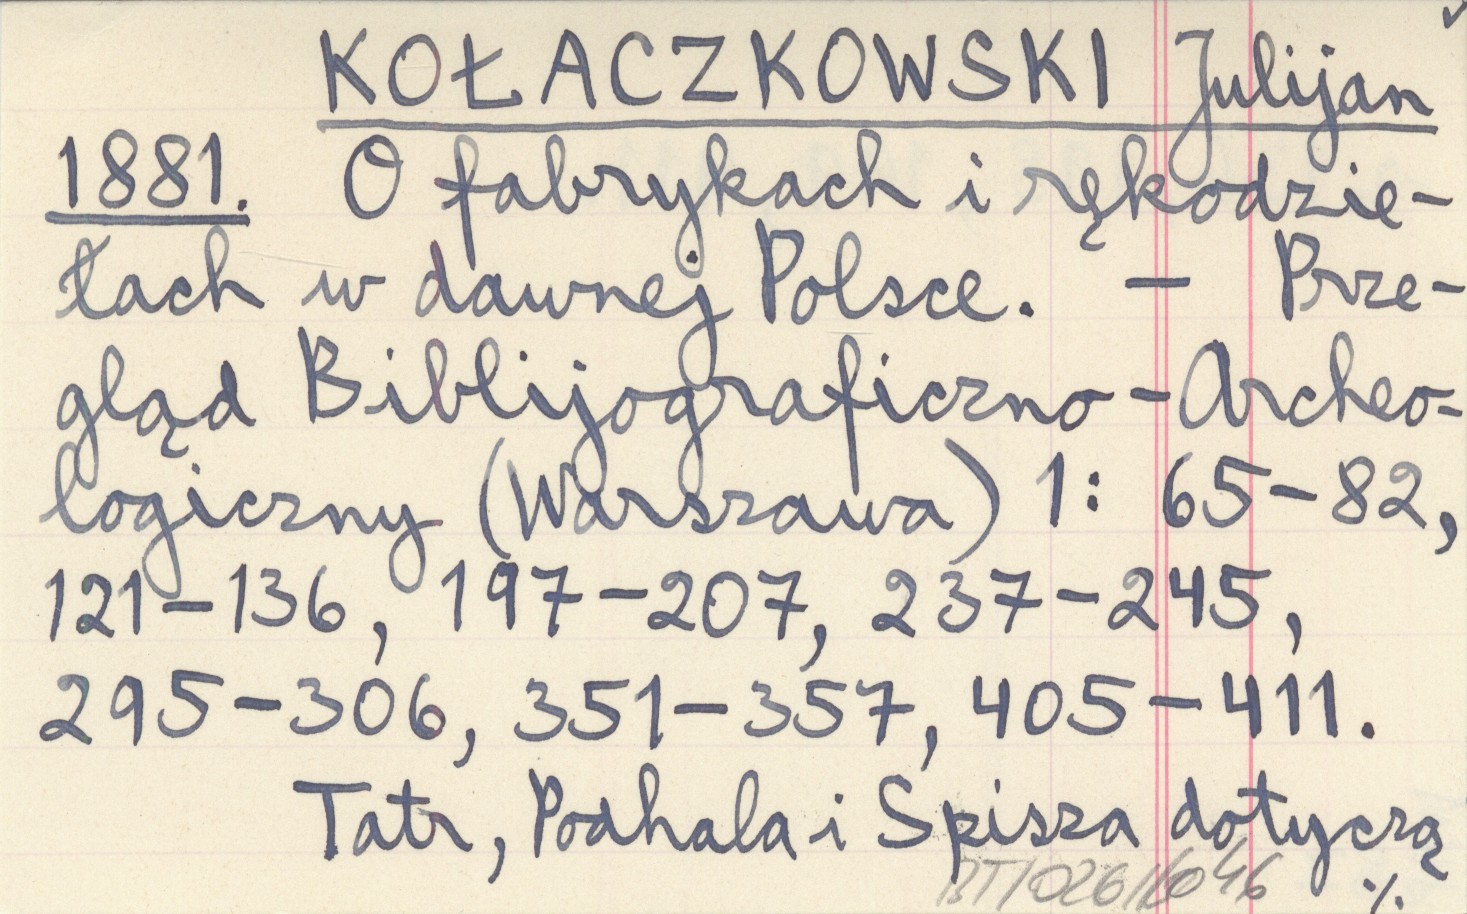 KOŁACZKOWSKI Julijan
1881. O fabrykach i rękodzie-
łach w dawnej Polsce. — Prze-
gląd Biblijograficzno-Archeo-
logiczny (Warszawa) 1: 65-82,
121-136, 197-207, 237-245,
295-306, 351-357, 405-411.
Tatr, Podhala i Spisza dotyczą
./.